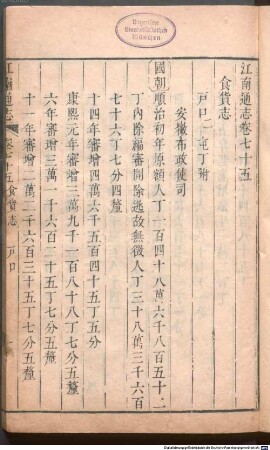 江南通志卷七十五
食貨志
戸口一 屯丁附
安徽布政使司
國朝順治初年原額人丁一百四十八萬六千八百五十二
丁內除編審開除逃故無徵人丁三十八萬三千六百
七十六丁七分四釐
十四年審增四萬六千五百四十五丁五分
康熙元年審增三萬九千二百八十八丁七分五釐
六年審增三萬一千六百二十五丁七分五釐
十一年審增二萬二千六百三十五丁七分五釐
江南通志
食貨志 戸口 一
Bayerische
Staatsbibliothek
München